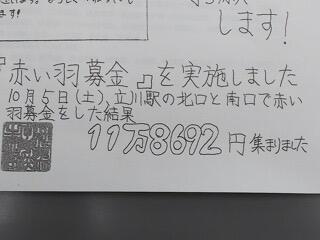 します!
『赤い羽募金』を実施しました
10月5日(土)、立川駅の北口と南口で赤い
羽募金をした結果
11万8692円集まりました